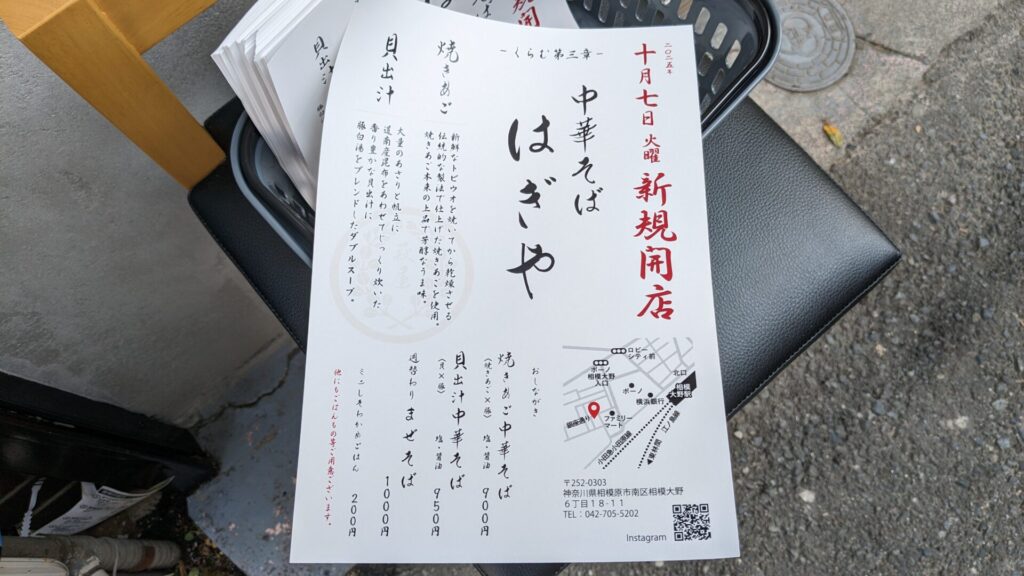 二〇二五年
十月七日 火曜 新規開店
-くらむ第三章-
中華そば
はぎや
焼きあご
新鮮なトビウオを焼いてから乾燥させる
伝統的な製法で仕上げた焼きあごを使用。
焼きあご本来の上品で芳醇なうま味。
貝出汁
大量のあさりと帆立に
道南産昆布をあわせてじっくり炊いた
香り豊かな貝出汁に
豚白湯をブレンドしたダブルスープ。
おしながき
焼きあご中華そば 塩・醤油 900円
(焼きあご×豚)
貝出汁中華そば 塩・醤油 950円
(貝×豚)
週替わりまぜそば 1000円
ミニしそわかめごはん 200円
他にもごはんもの等ご用意ございます。
ロビー
シティ前
ボーノ
相模大野
入口
北口
ボーノ
横浜銀行
相模
大野駅
銀座通り
ファミリー
マート
小田急小田原線
▼東林間 江ノ島線
〒252-0303
神奈川県相模原市南区相模大野
6丁目18-11
TEL：042-705-5202
Instagram
貝出汁
規開